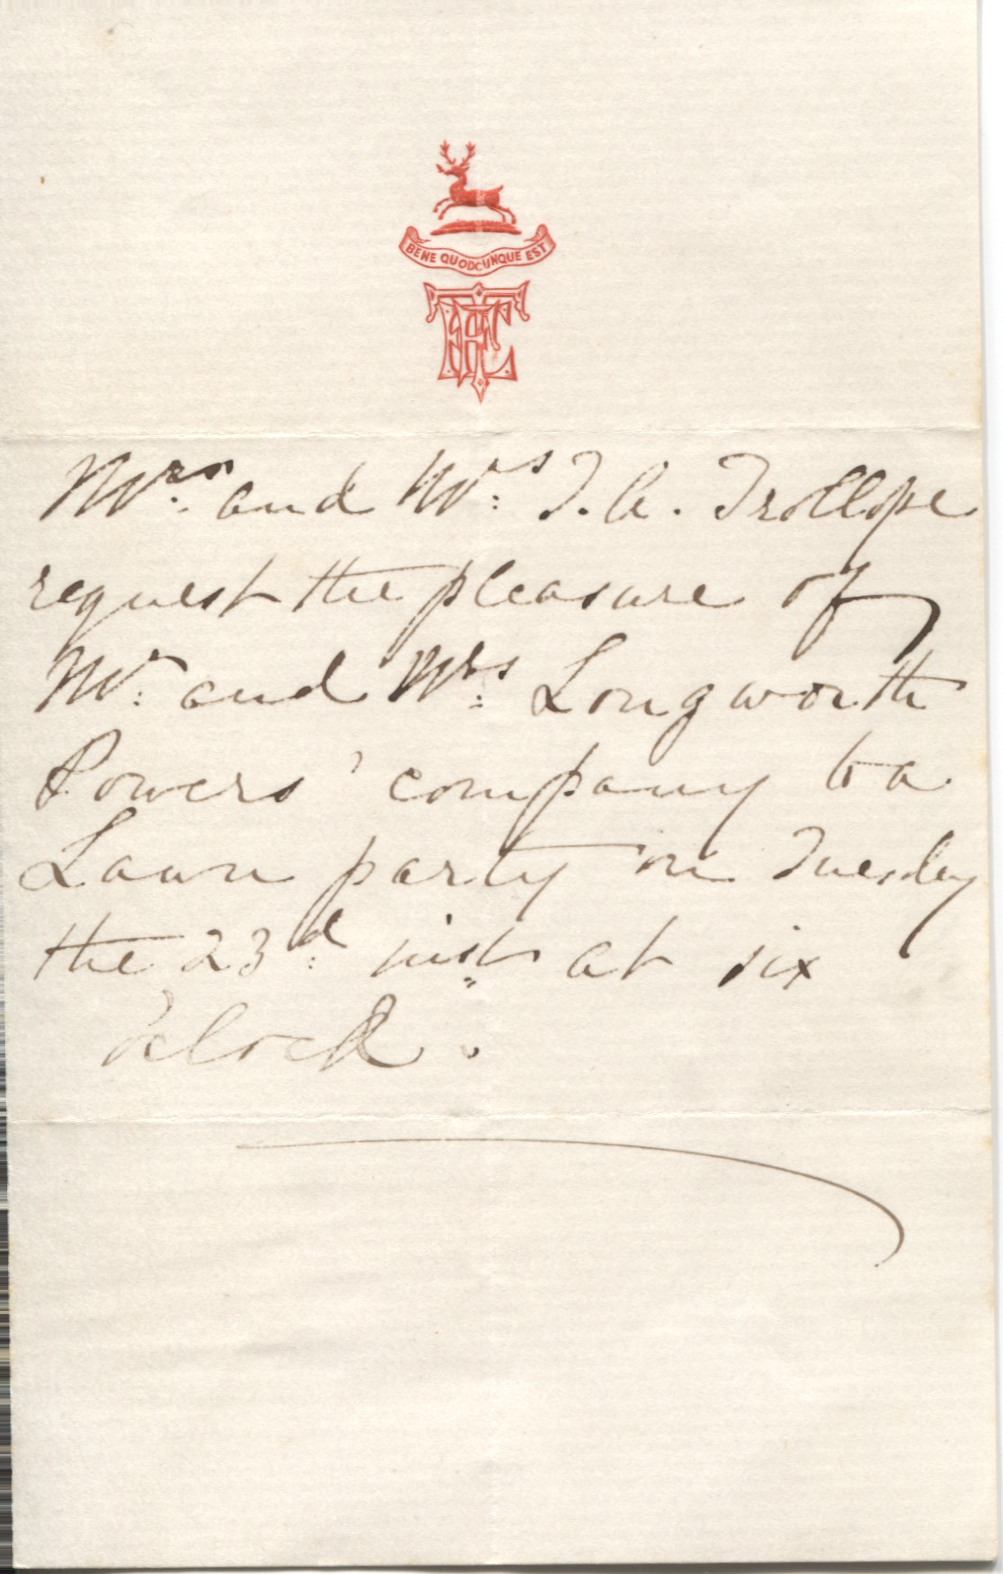 BENE QUODCUNQUE EST
Mr. and Mrs. T. A. Trollope
request the pleasure of
Mr. and Mrs. Longworth
Powers' company to a
Lawn party on Tuesday
the 23d. inst. at six
o'clock.